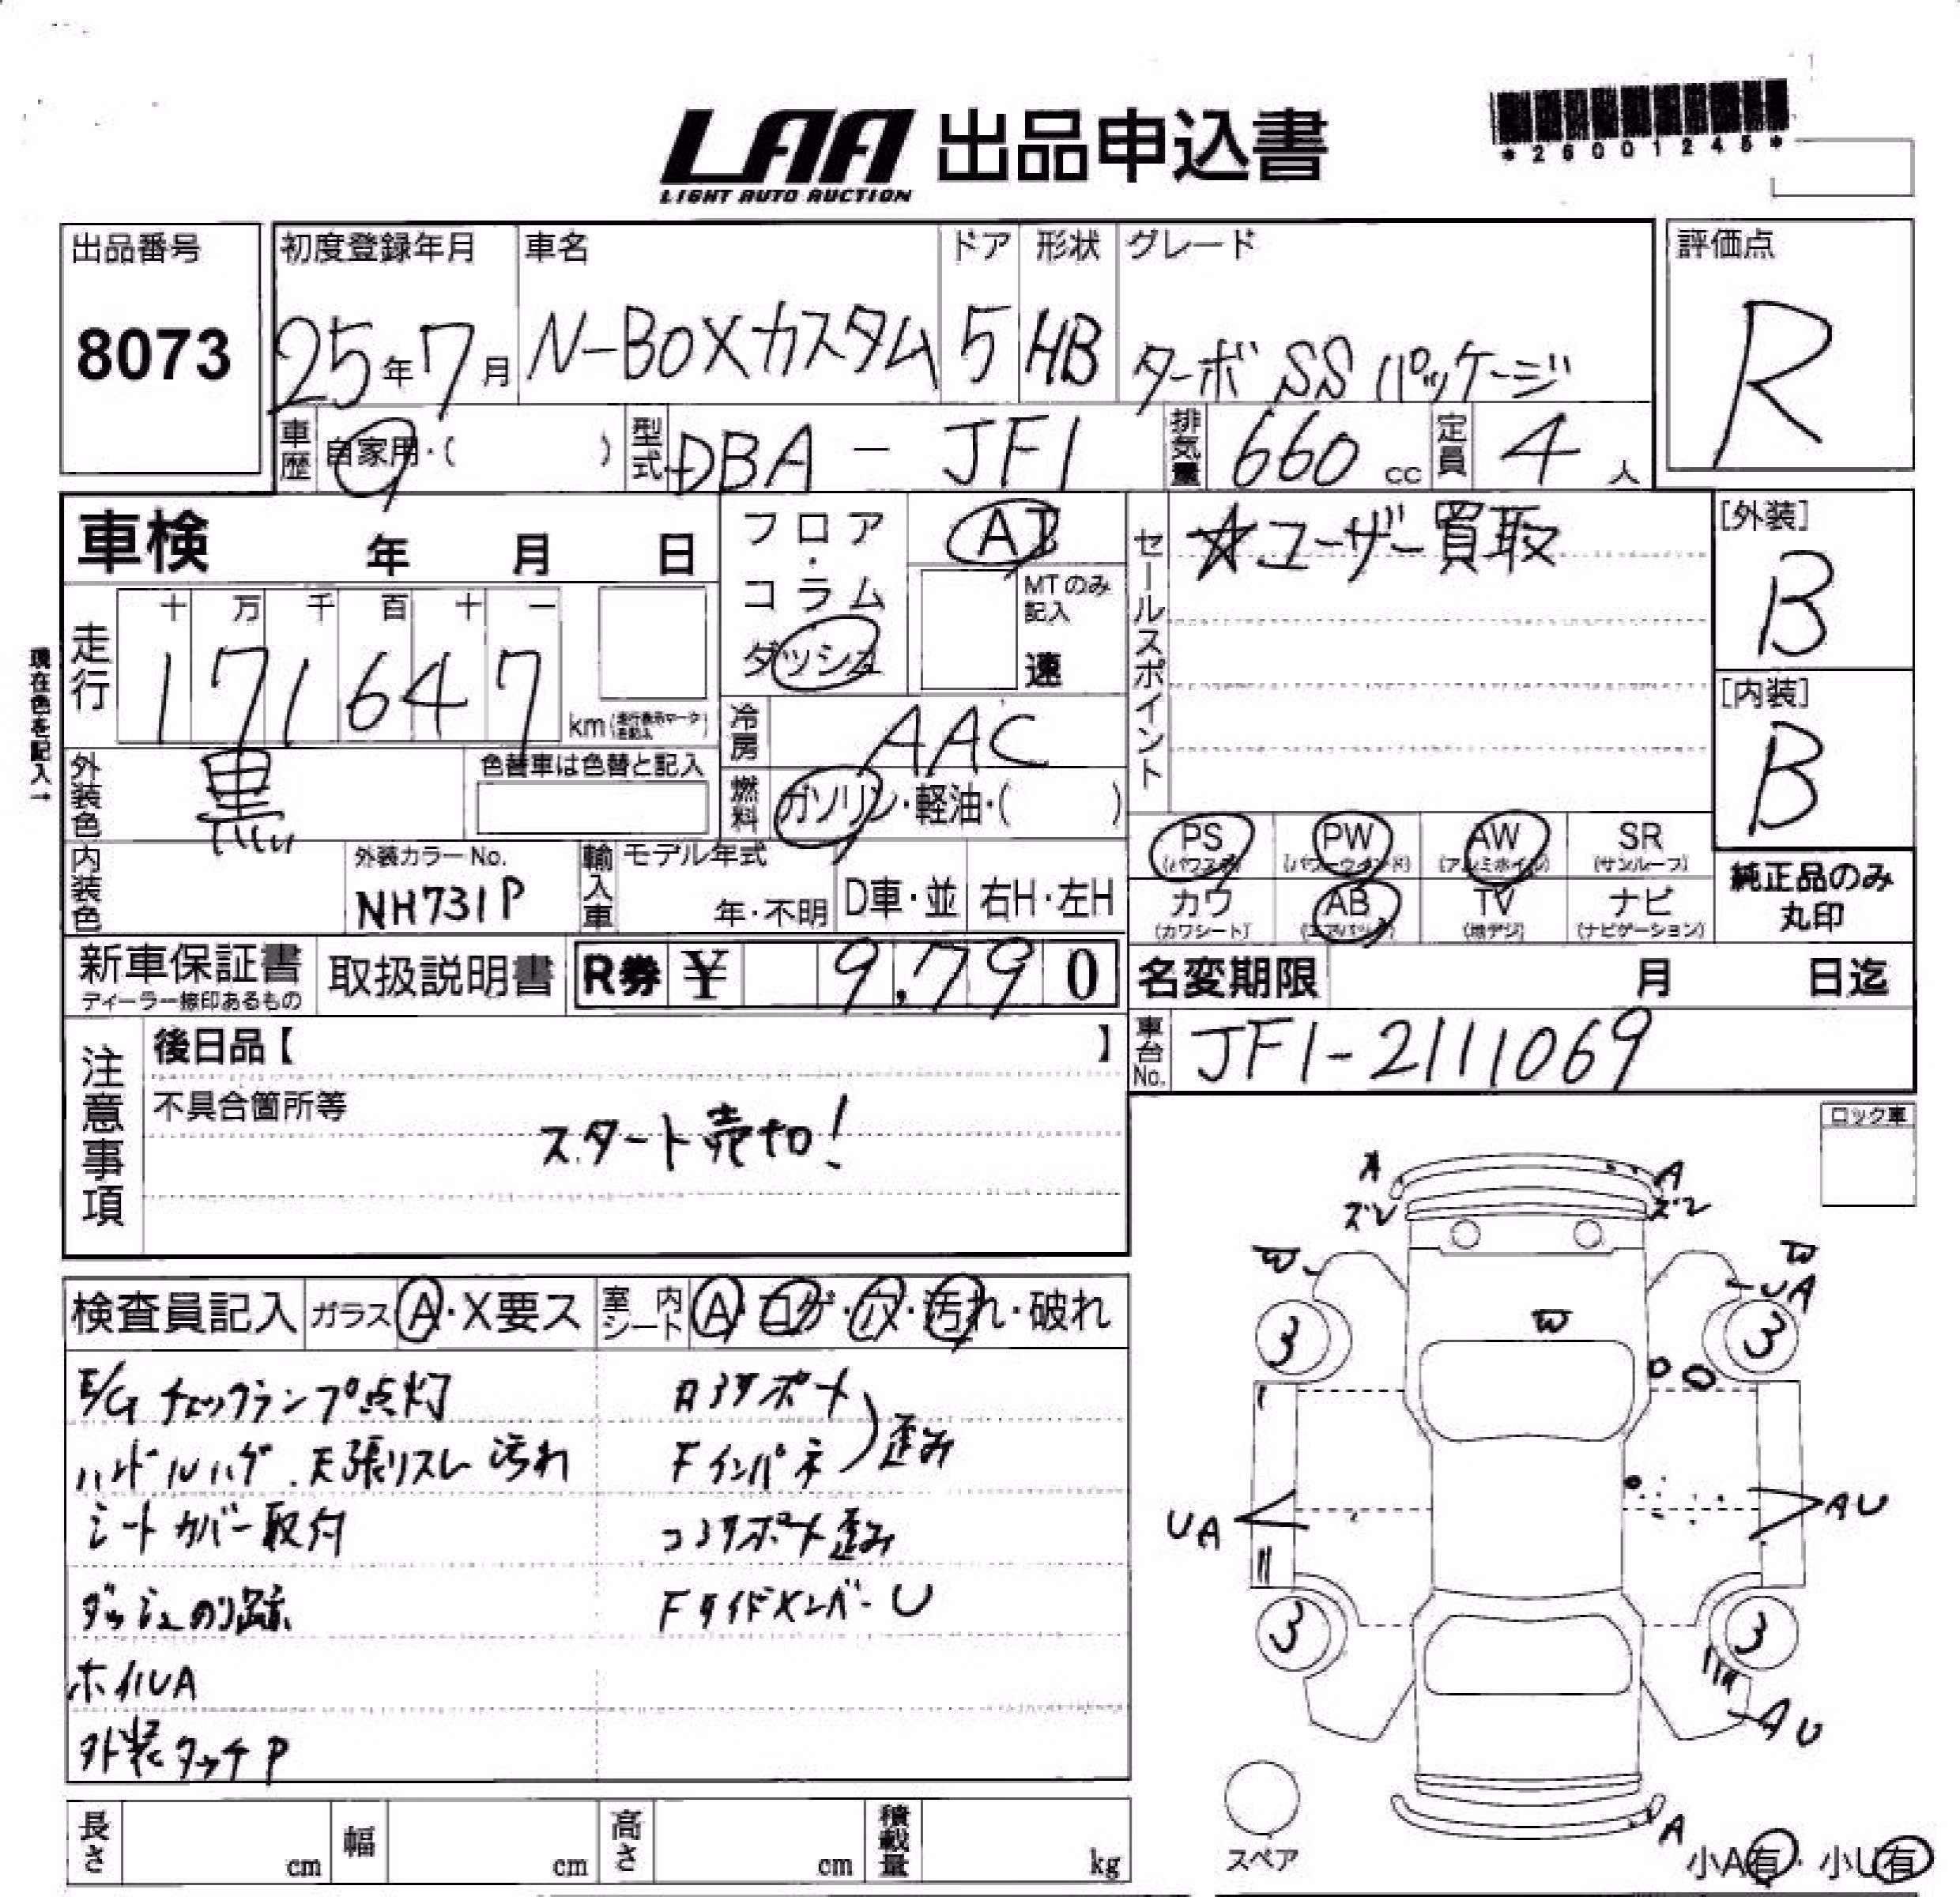 LAA 出品申込書
LIGHT AUTO AUCTION
*26001245*
出品番号
8073
初度登録年月
25年7月
車名
N-BOXカスタム
ドア
5
形状
HB
グレード
ターボ SSパッケージ
評価点
R
車歴
自家用・( )
型式
DBA - JF1
排気量
660 cc
定員
4 人
車検 年 月 日
フロア・コラム
ダッシュ
AT
MTのみ記入
速
セールスポイント
☆ユーザー買取
[外装]
B
[内装]
B
現在色を記入→
走行
十 万 千 百 十 一
171647
km
冷房
AAC
燃料
ガソリン・軽油・( )
外装色
黒
色替車は色替と記入
内装色
外装カラーNo.
NH731P
輸入車
モデル年式
年・不明
D車・並
右H・左H
PS
(パワステ)
PW
(パワーウインド)
AW
(アルミホイル)
SR
(サンルーフ)
カワ
(カワシート)
AB
(エアバッグ)
TV
(地デジ)
ナビ
(ナビゲーション)
純正品のみ
丸印
新車保証書
ディーラー捺印あるもの
取扱説明書
R券 ¥ 9,790
名変期限 月 日迄
注意事項
後日品【 】
車台No.
JF1-2111069
不具合箇所等
スタート売切!
ロック車
検査員記入
ガラス A・X要ス
室内シート A・コゲ・穴・汚れ・破れ
E/Gチェックランプ点灯
ハンドルハゲ.天張リスレ 汚れ
シートカバー取付
ダッシュのり跡
ホイルUA
外装タッチP
Fインパネ
歪み
コアサポート歪み
FサイドメンバーU
A
A
ズレ
ズレ
W
W
UA
W
3
3
UA
AU
3
3
AU
A
スペア
小A有・小U有
長さ cm
幅 cm
高さ cm
積載量 kg